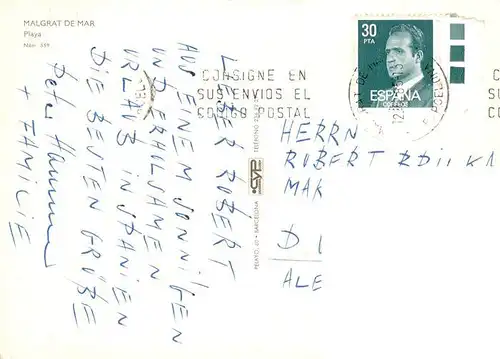 MALGRAT DE MAR
Playa
Núm. 649
LIEBER ROBERT
AUS EINEM SONNIGEN
UND ERHOLSAMEN
URLAUB IN SPANIEN
DIE BESTEN GRÜßE
Peter
+ FAMILIE
CONSIGNE EN
SUS ENVIOS EL
CODIGO POSTAL
30
PTA
ESPAÑA
CORREOS
HERRN
ROBERT
MAR
D
ALE
PELAYO, 60 • BARCELONA
CYP
TELEFONO